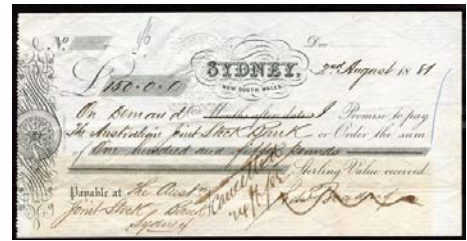 No
Due
£150.0.0 SYDNEY, 2nd August 1881
NEW SOUTH WALES.
On Demand Months after date I Promise to pay
The Australian Joint Stock Bank or Order the sum
of One hundred and fifty pounds
Sterling Value received.
Payable at The Aust
Joint Stock Bank
Sydney
Cancelled